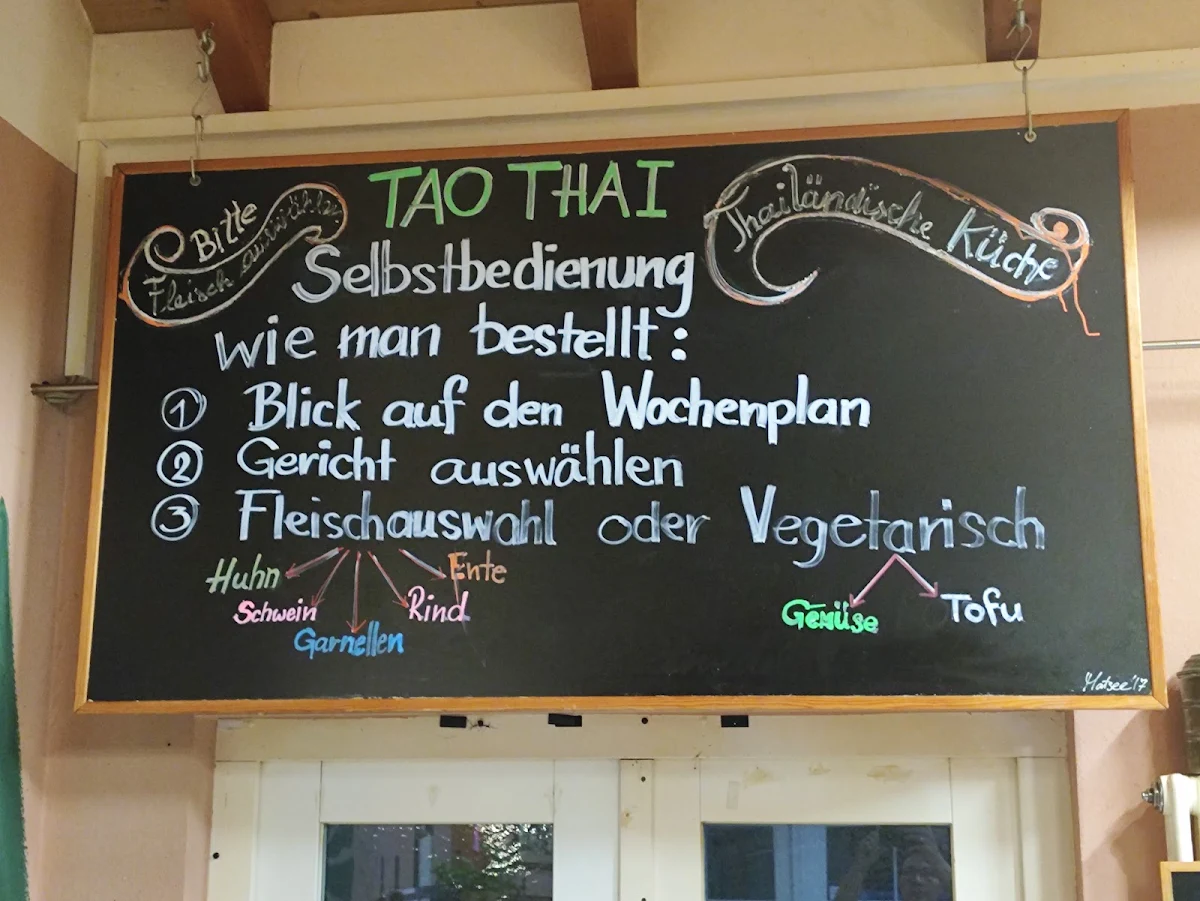 Bitte
Fleisch auswählen
TAO THAI
Thailändische Küche
Selbstbedienung
wie man bestellt:
1 Blick auf den Wochenplan
2 Gericht auswählen
3 Fleischauswahl oder Vegetarisch
Huhn
Schwein
Garnellen
Rind
Ente
Gemüse
Tofu